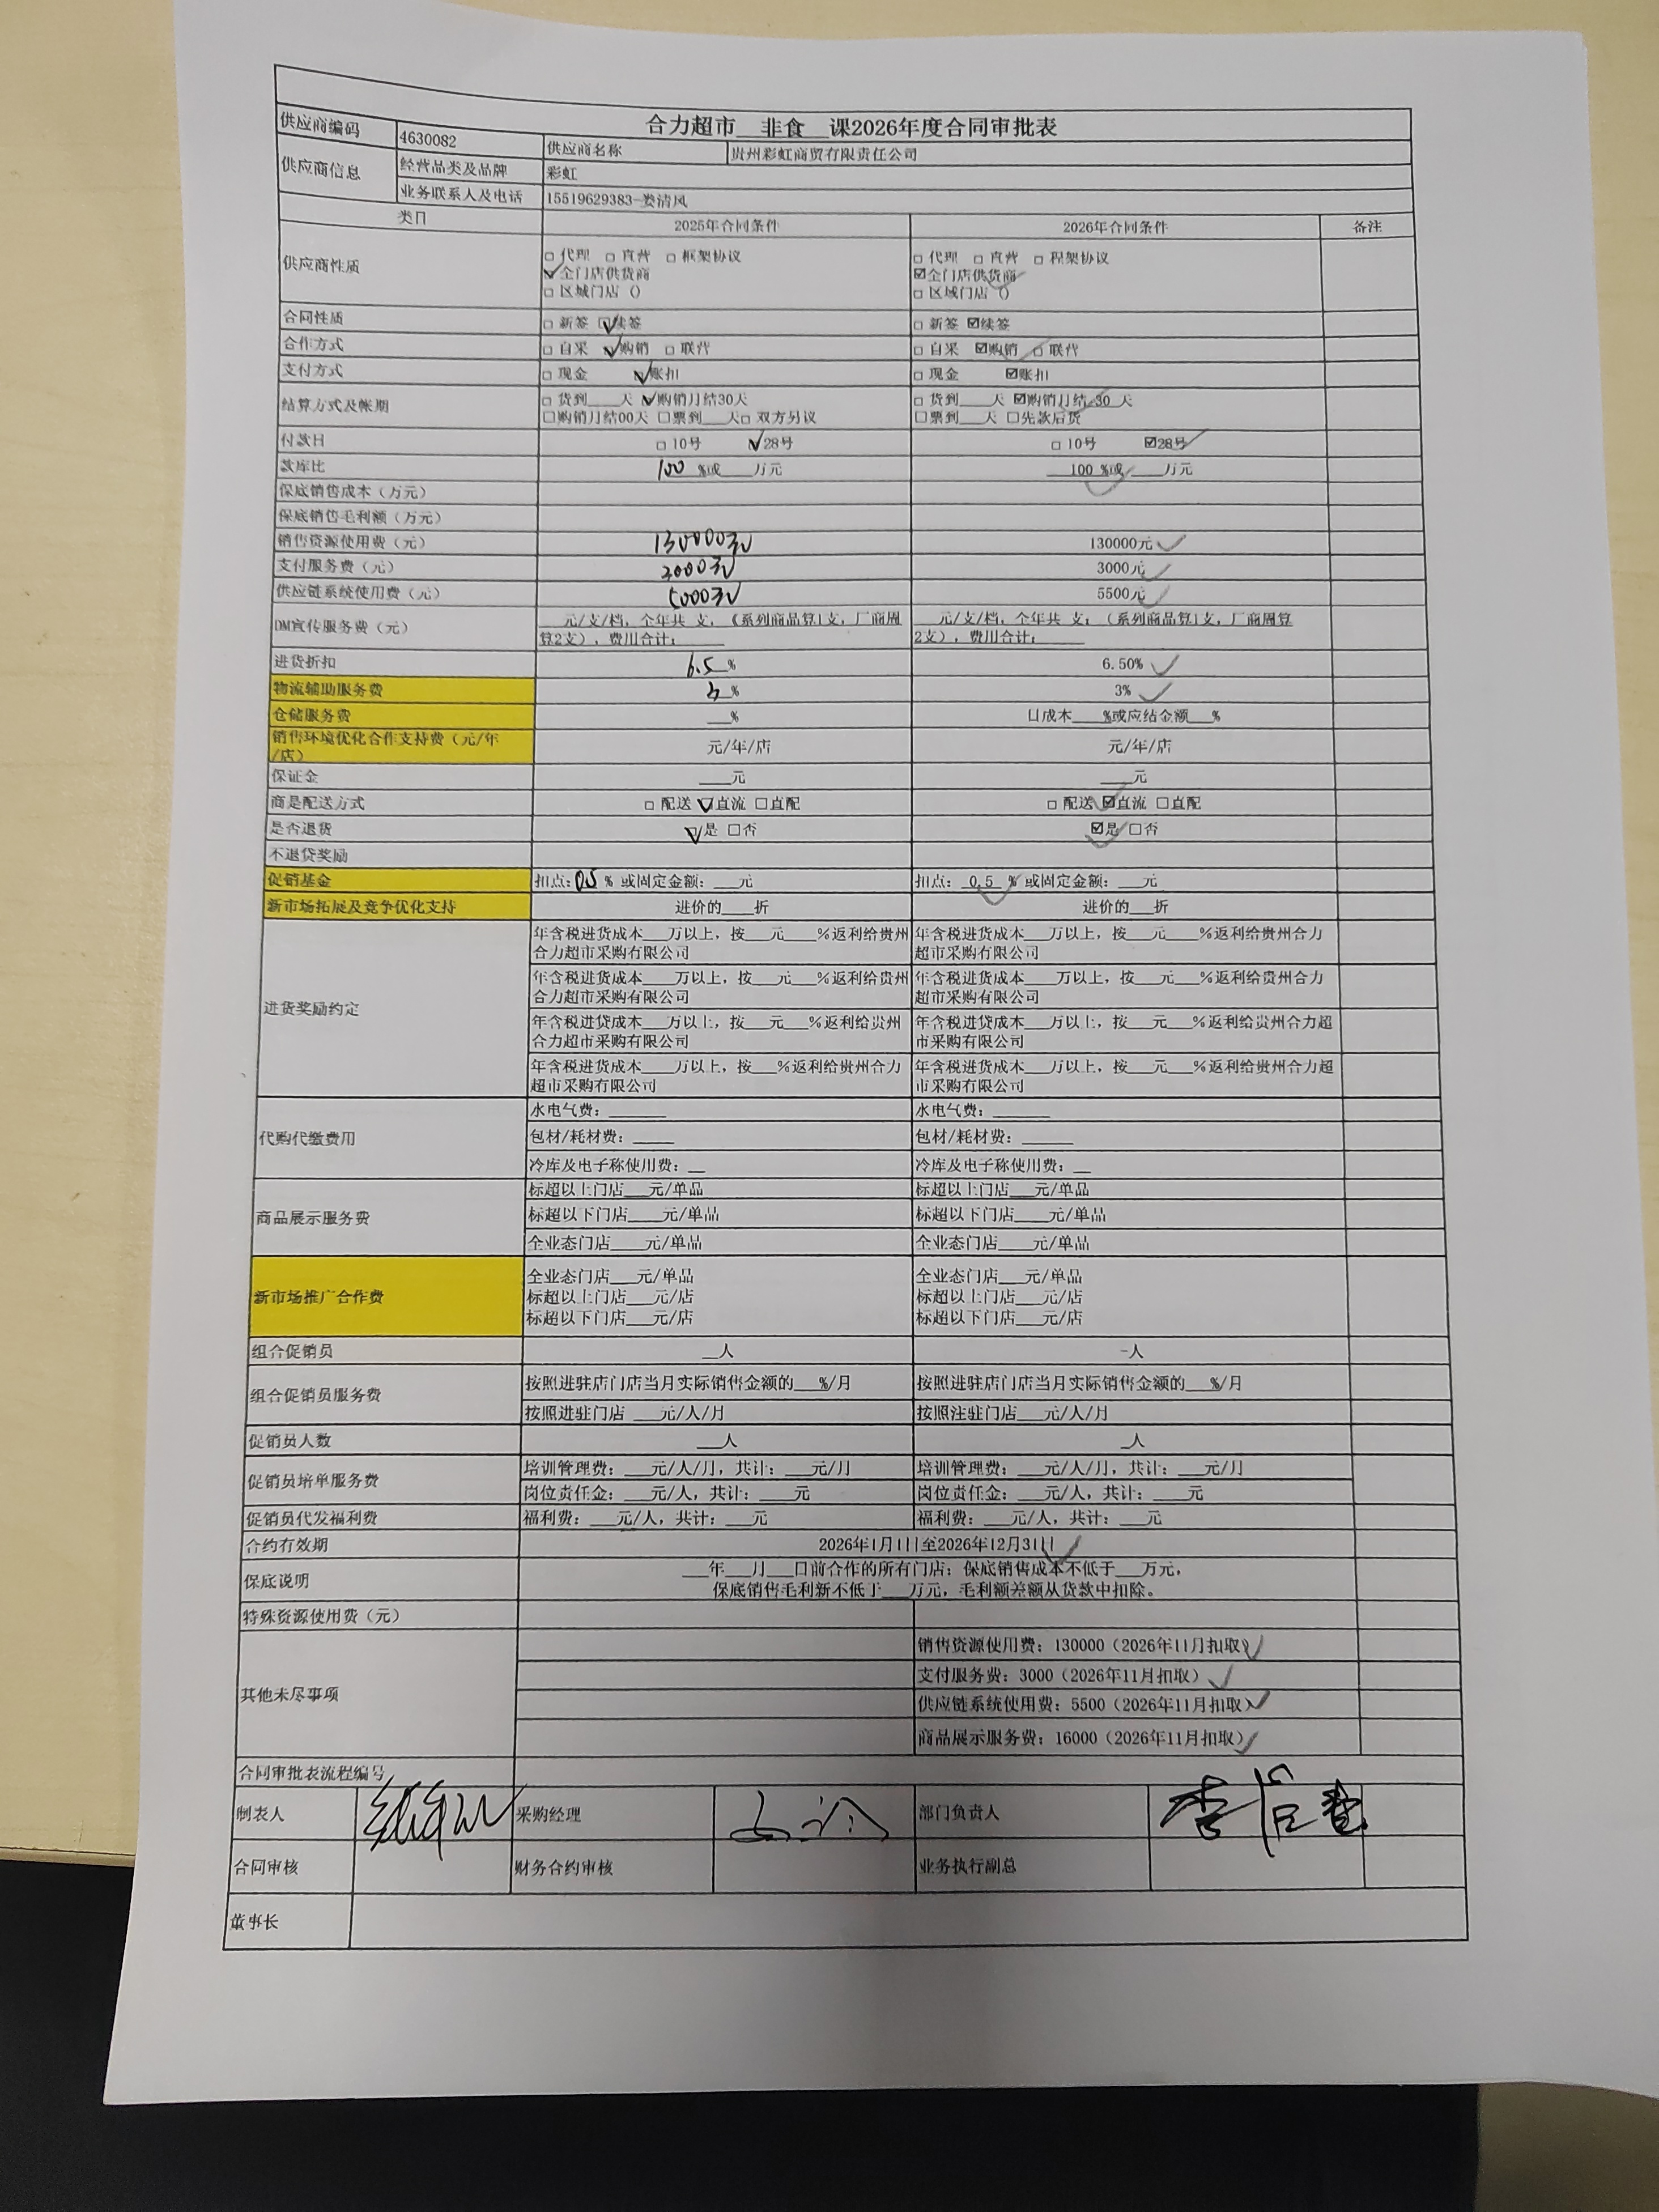 合力超市__非食__课2026年度合同审批表
供应商编码 4630082 供应商名称 贵州彩虹商贸有限责任公司
供应商信息 经营品类及品牌 彩虹
业务联系人及电话 15519629383-娄清风
类目 2025年合同条件 2026年合同条件 备注
供应商性质 □ 代理 □ 直营 □ 框架协议 □ 代理 □ 直营 □ 框架协议
☑全门店供货商 ☑全门店供货商
□ 区域门店 () □ 区域门店 ()
合同性质 □ 新签 ☑续签 □ 新签 ☑续签
合作方式 □ 自采 ☑购销 □ 联营 □ 自采 ☑购销 □ 联营
支付方式 □ 现金 ☑账扣 □ 现金 ☑账扣
结算方式及帐期 □ 货到___天 ☑购销月结30天 □ 货到___天 ☑购销月结 30 天
□购销月结00天 □票到___天□ 双方另议 □票到___天 □先款后货
付款日 □ 10号 ☑28号 □ 10号 ☑28号
款库比 100 %或___万元 100 %或___万元
保底销售成本（万元）
保底销售毛利额（万元）
销售资源使用费（元） 130000元 130000元
支付服务费（元） 3000元 3000元
供应链系统使用费（元） 5000元 5500元
DM宣传服务费（元） ___元/支/档，全年共 支，（系列商品算1支，厂商周 ___元/支/档，全年共 支；（系列商品算1支，厂商周算
算2支），费用合计：_____ 2支），费用合计：_____
进货折扣 6.5 % 6.50%
物流辅助服务费 3 % 3%
仓储服务费 ___% 口成本___%或应结金额___%
销售环境优化合作支持费（元/年 元/年/店 元/年/店
/店）
保证金 ____元 ____元
商品配送方式 □ 配送 ☑直流 □直配 □ 配送 ☑直流 □直配
是否退货 ☑是 □否 ☑是 □否
不退货奖励
促销基金 扣点：0.5 % 或固定金额：___元 扣点： 0.5 % 或固定金额：___元
新市场拓展及竞争优化支持 进价的____折 进价的___折
进货奖励约定 年含税进货成本___万以上，按___元____%返利给贵州 年含税进货成本___万以上，按___元____%返利给贵州合力
合力超市采购有限公司 超市采购有限公司
年含税进货成本____万以上，按___元___%返利给贵州 年含税进货成本____万以上，按___元___%返利给贵州合力
合力超市采购有限公司 超市采购有限公司
年含税进货成本___万以上，按___元___%返利给贵州 年含税进货成本___万以上，按___元___%返利给贵州合力超
合力超市采购有限公司 市采购有限公司
年含税进货成本____万以上，按___%返利给贵州合力 年含税进货成本___万以上，按___元___%返利给贵州合力超
超市采购有限公司 市采购有限公司
代购代缴费用 水电气费：______ 水电气费：______
包材/耗材费：_____ 包材/耗材费：_____
冷库及电子称使用费：__ 冷库及电子称使用费：__
商品展示服务费 标超以上门店___元/单品 标超以上门店___元/单品
标超以下门店____元/单品 标超以下门店____元/单品
全业态门店____元/单品 全业态门店____元/单品
新市场推广合作费 全业态门店___元/单品 全业态门店___元/单品
标超以上门店___元/店 标超以上门店___元/店
标超以下门店___元/店 标超以下门店___元/店
组合促销员 __人 -人
组合促销员服务费 按照进驻店门店当月实际销售金额的___%/月 按照进驻店门店当月实际销售金额的___%/月
按照进驻门店 ___元/人/月 按照注驻门店___元/人/月
促销员人数 ____人 __人
促销员培单服务费 培训管理费：___元/人/月，共计：___元/月 培训管理费：___元/人/月，共计：___元/月
岗位责任金：___元/人，共计：____元 岗位责任金：___元/人，共计：____元
促销员代发福利费 福利费：___元/人，共计：___元 福利费：___元/人，共计：___元
合约有效期 2026年1月1日至2026年12月31日
保底说明 ___年___月___日前合作的所有门店；保底销售成本不低于___万元，
保底销售毛利新不低于___万元，毛利额差额从货款中扣除。
特殊资源使用费（元）
其他未尽事项 销售资源使用费：130000（2026年11月扣取）
支付服务费：3000（2026年11月扣取）
供应链系统使用费：5500（2026年11月扣取）
商品展示服务费：16000（2026年11月扣取）
合同审批表流程编号
制表人 采购经理 部门负责人
合同审核 财务合约审核 业务执行副总
董事长